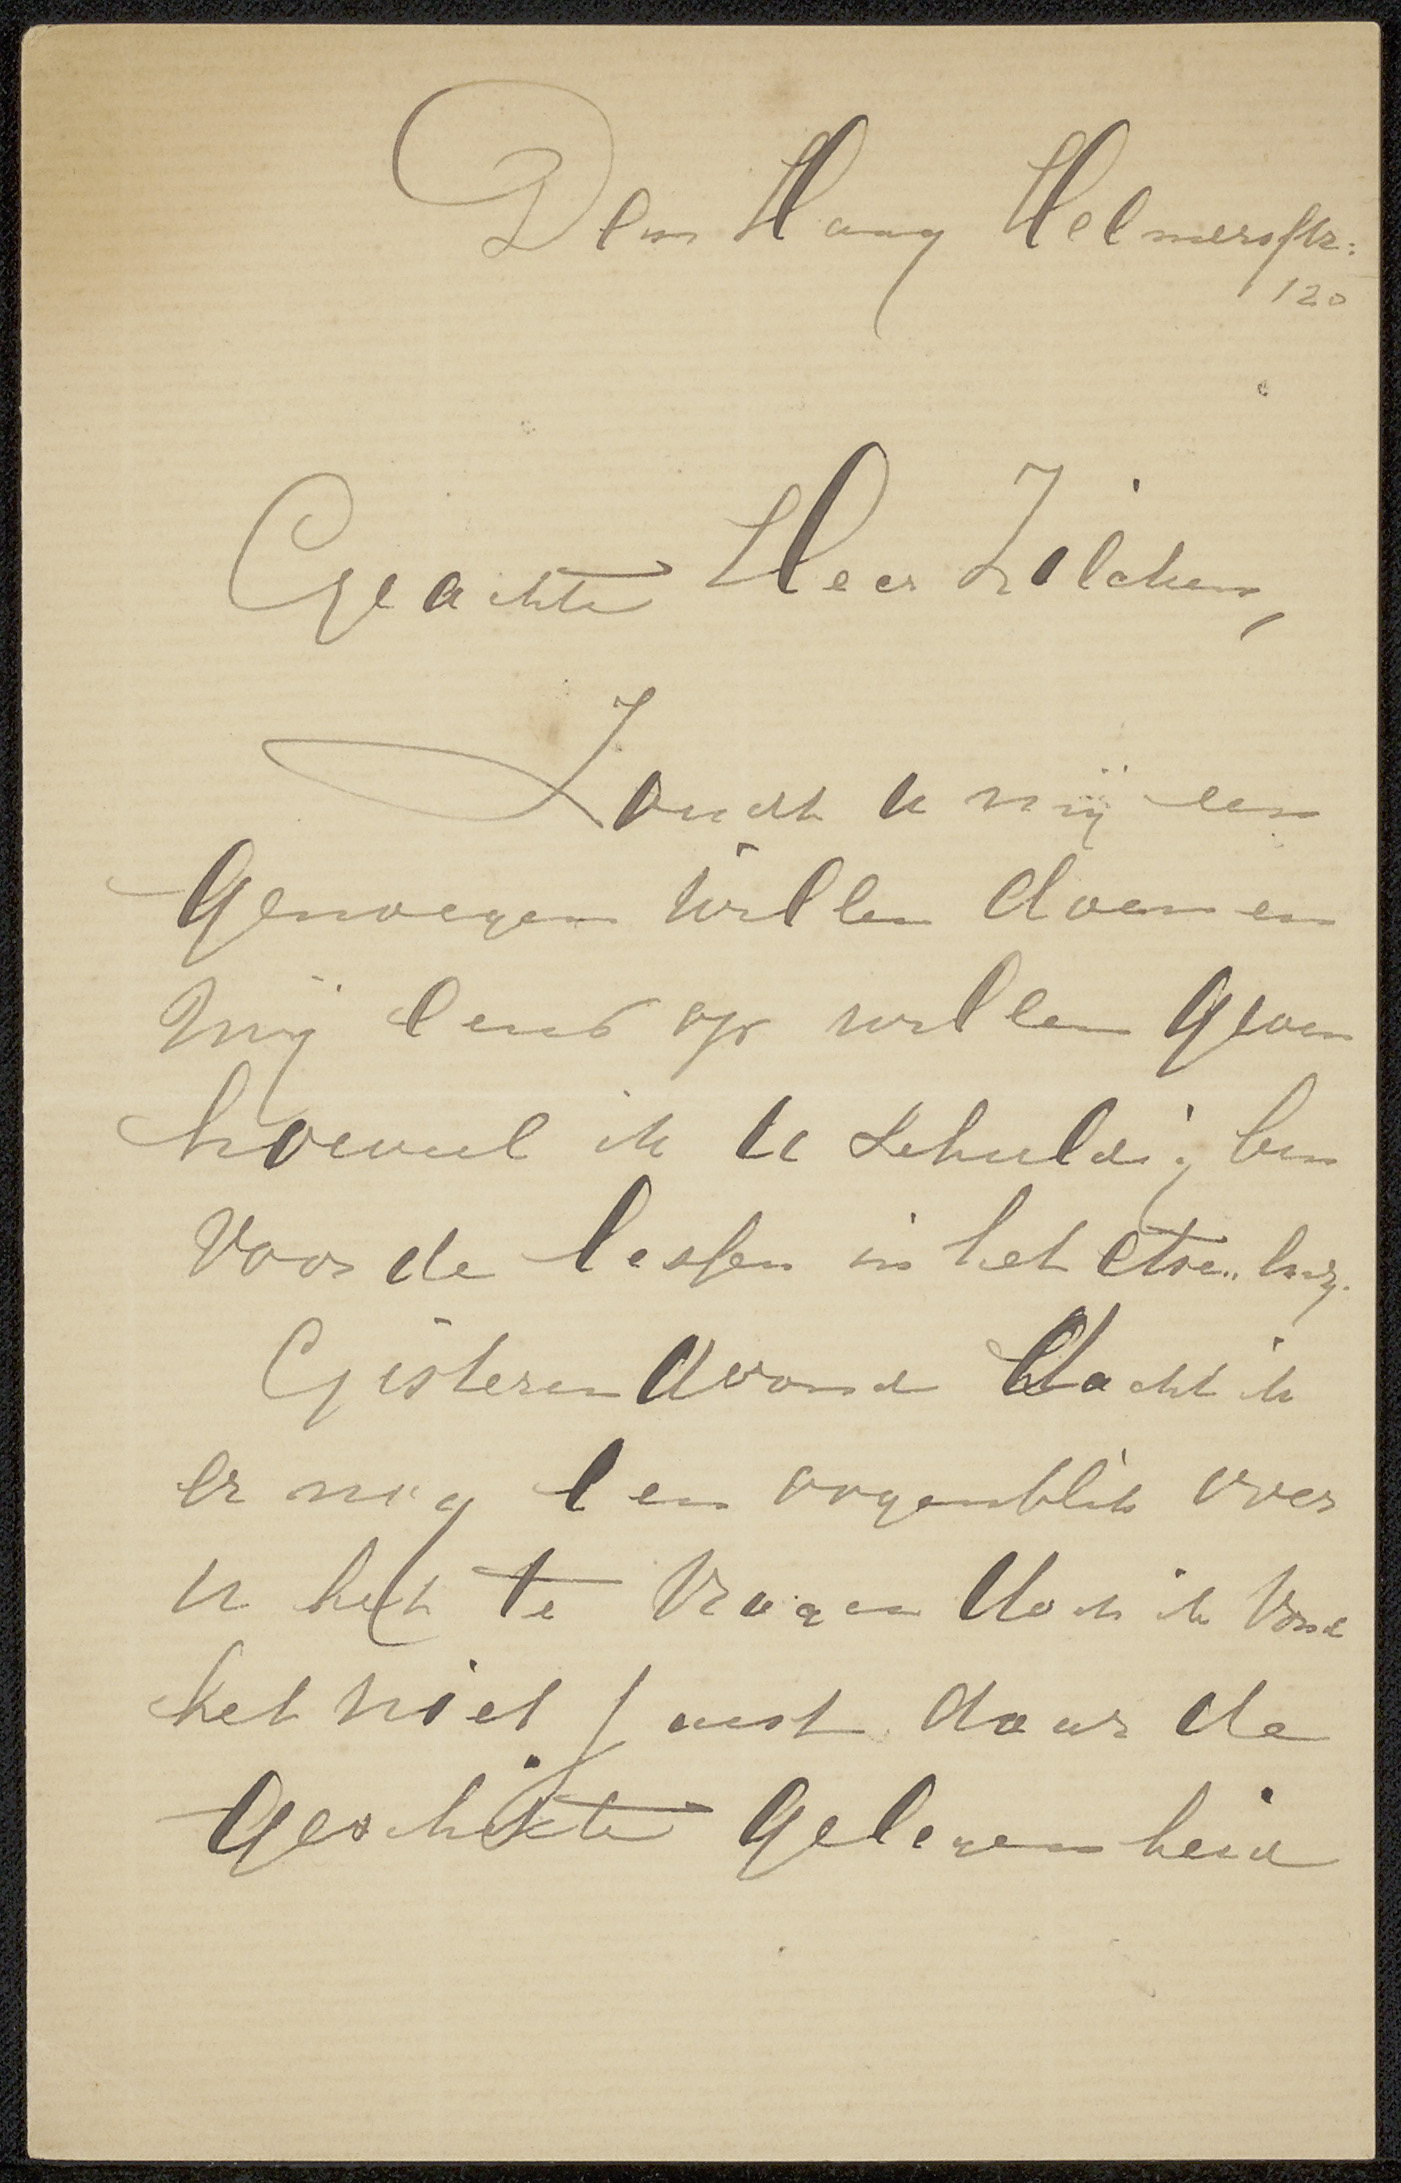 Den Haag Helmersstr:
120
Geachte Heer Zilcken,
Zoudt u mij een
genoegen willen doen en
mij eens op willen geven
hoeveel ik u schuldig ben
voor de lessen in het etsen enz.
Gisteren avond dacht ik
er nog een oogenblik over
u het te vragen doch ik vond
het niet juist daar de
geschikte gelegenheid